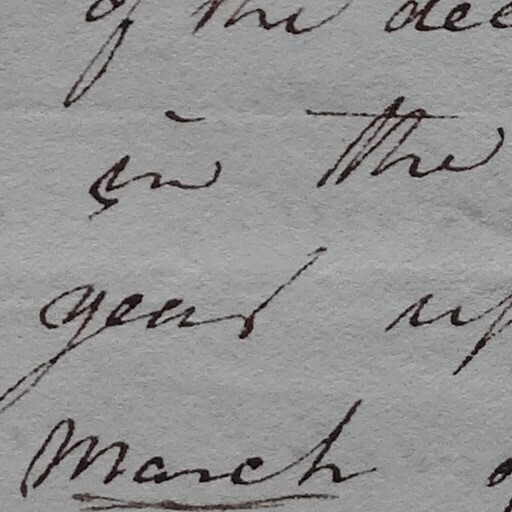 of the dec
in the
year up
March